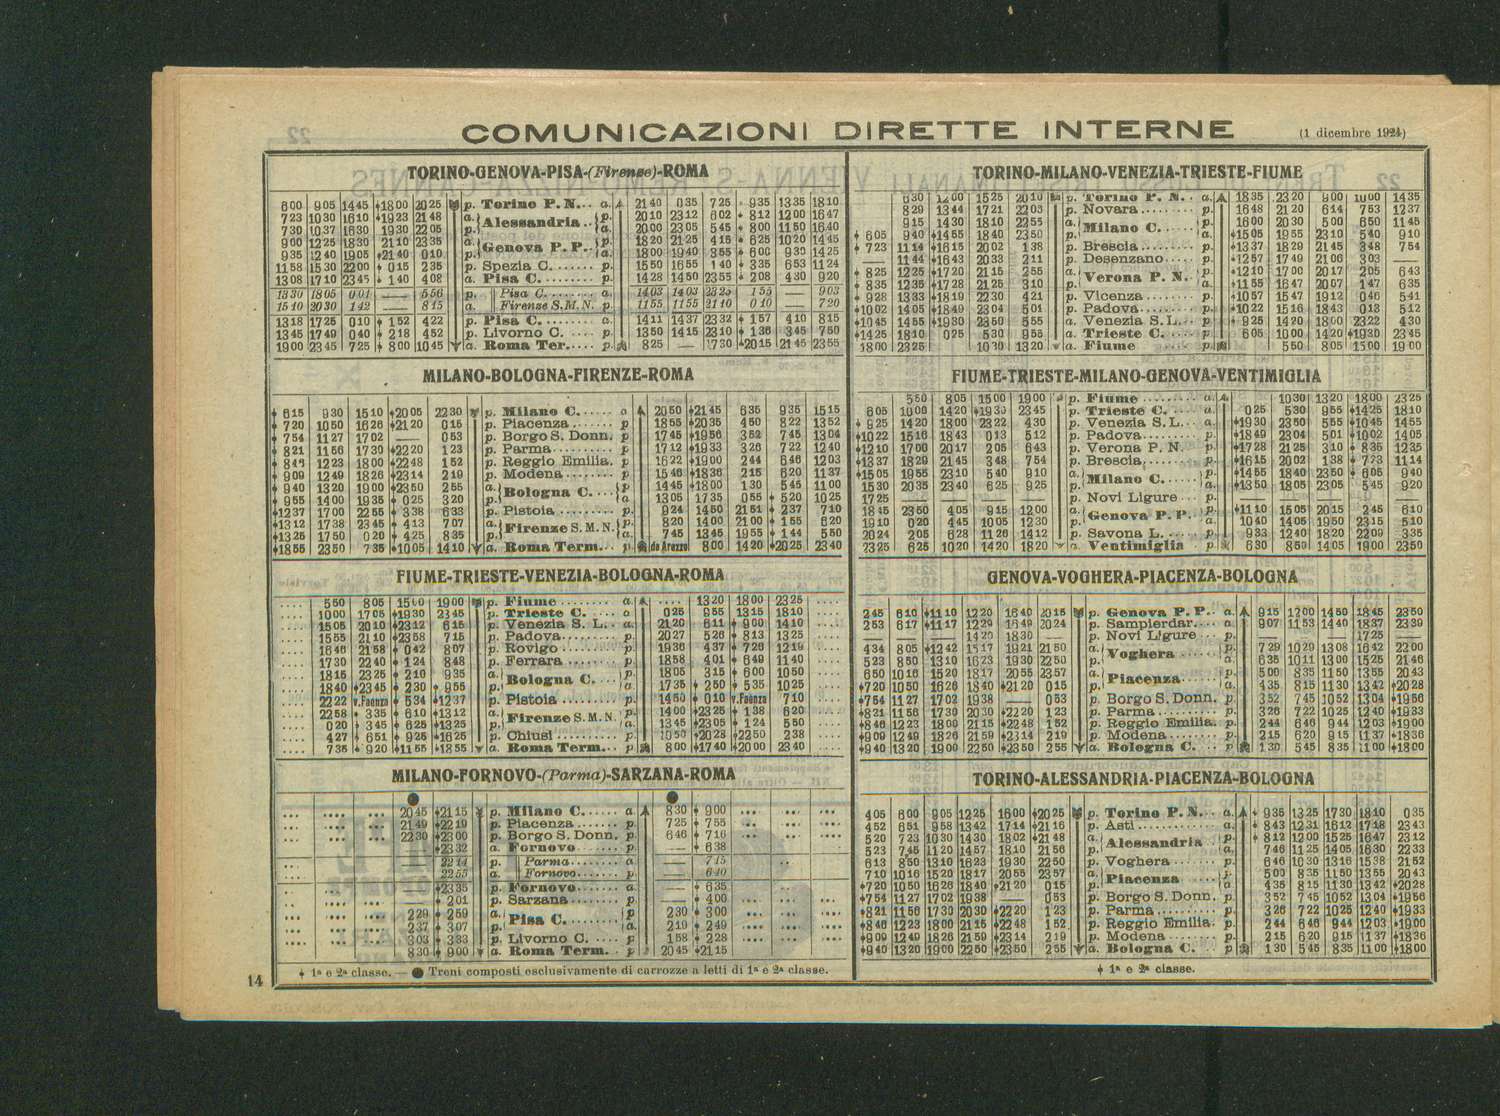 COMUNICAZIONI DIRETTE INTERNE
(1 dicembre 1924)
TORINO-GENOVA-PISA-(Firenze)-ROMA
6 00 9 05 14 45 18 00 20 25 p. Torino P. N. a. 21 40 0 35 7 25 9 35 13 35 18 10
7 23 10 30 16 10 19 23 21 48 a. Alessandria p. 20 10 23 12 6 02 8 12 12 00 16 47
7 30 10 37 16 30 19 30 22 05 p. a. 20 00 23 05 5 45 8 00 11 50 16 40
9 00 12 25 18 30 21 10 23 35 a. Genova P. P. p. 18 20 21 25 4 15 6 25 10 20 14 45
9 35 12 40 19 05 21 40 0 10 p. a. 18 00 19 40 3 55 6 00 9 30 14 25
11 58 15 30 22 00 0 15 2 35 p. Spezia C. p. 15 50 16 55 1 40 3 35 6 53 11 24
13 08 17 10 23 45 1 40 4 08 a. Pisa C. p. 14 28 14 50 23 55 2 08 4 30 9 20
13 30 18 05 0 01 — 5 56 p. Pisa C. a. 14 03 14 03 23 25 1 55 — 9 03
15 10 20 30 1 42 — 8 15 a. Firenze S. M. N. p. 11 55 11 55 21 10 0 10 — 7 20
13 18 17 25 0 10 1 52 4 22 p. Pisa C. a. 14 11 14 37 23 32 1 57 4 10 8 15
13 45 17 49 0 40 2 18 4 52 p. Livorno C. p. 13 50 14 15 23 10 1 36 3 45 7 50
19 00 23 45 7 25 8 00 10 45 a. Roma Ter. p. 8 25 — 17 30 20 15 21 45 23 55
MILANO-BOLOGNA-FIRENZE-ROMA
6 15 9 30 15 10 20 05 22 30 p. Milano C. a 20 50 21 45 6 35 9 35 15 15
7 20 10 50 16 26 21 20 0 15 p. Piacenza p 18 55 20 35 4 50 8 22 13 52
7 54 11 27 17 02 — 0 53 p. Borgo S. Donn. p 17 45 19 56 3 52 7 45 13 04
8 21 11 56 17 30 22 20 1 23 p. Parma p 17 12 19 33 3 26 7 22 12 40
8 46 12 23 18 00 22 48 1 52 p. Reggio Emilia. p 16 22 19 00 2 44 6 46 12 03
9 09 12 49 18 26 23 14 2 19 p. Modena p. 15 46 18 36 2 15 6 20 11 37
9 40 13 20 19 00 23 50 2 55 a. Bologna C. p 14 45 18 00 1 30 5 45 11 00
9 55 14 00 19 35 0 25 3 20 p. a. 13 05 17 35 0 55 5 20 10 25
12 37 17 00 22 55 3 38 6 33 p. Pistoia p. 9 24 14 50 21 51 2 37 7 10
13 12 17 38 23 45 4 13 7 07 a. Firenze S. M. N. p. 8 20 14 00 21 00 1 55 6 20
13 25 17 50 0 20 4 25 8 35 p. a. 7 45 13 45 19 55 1 44 5 50
18 55 23 50 7 35 10 05 14 10 a. Roma Term. p. da Arezzo 8 00 14 20 20 25 23 40
FIUME-TRIESTE-VENEZIA-BOLOGNA-ROMA
.... 5 50 8 05 15 00 19 00 p. Fiume a. .... 13 20 18 00 23 25 ....
.... 10 00 17 05 19 30 23 45 p. Trieste C. a. 0 25 9 55 13 15 18 10
.... 15 05 20 10 23 12 6 15 p. Venezia S. L. a. 21 20 6 11 9 00 14 10
.... 15 55 21 10 23 58 7 15 p. Padova p. 20 27 5 26 8 13 13 25
.... 16 46 21 58 0 42 8 07 p. Rovigo p. 19 36 4 37 7 26 12 19
.... 17 30 22 40 1 24 8 48 p. Ferrara p. 18 58 4 01 6 49 11 40
.... 18 15 23 25 2 10 9 35 a. Bologna C. p. 18 05 3 15 6 00 10 50
.... 18 40 23 45 2 30 9 55 p. a. 17 35 2 50 5 35 10 25
.... 22 22 v. Faenza 5 34 12 37 p. Pistoia p. 14 50 0 10 v. Faenza 7 10
.... 22 58 3 35 6 10 13 12 a. Firenze S. M. N. p. 14 00 23 25 1 38 6 20
.... 0 20 3 45 6 25 13 25 p. a. 13 45 23 05 1 24 5 50
.... 4 27 6 51 9 25 16 25 p. Chiusi p. 10 50 20 28 22 50 2 38
.... 7 35 9 20 11 55 18 55 a. Roma Term. p. 8 00 17 40 20 00 23 40
MILANO-FORNOVO-(Parma)-SARZANA-ROMA
20 45 21 15 p. Milano C. a. 8 30 9 00
21 49 22 19 p. Piacenza p 7 25 7 55
22 30 23 00 p. Borgo S. Donn. p. 6 46 7 16
23 32 a. Fornovo p. — 6 38
22 14 p. Parma a. — 7 15
22 55 a. Fornovo p. — 6 40
23 35 p. Fornovo a. — 6 35
— 2 01 p. Sarzana p. — 4 00
2 29 2 59 a. Pisa C. p. 2 30 3 00
2 37 3 07 p. a. 2 19 2 49
3 03 3 33 p. Livorno C. p. 1 58 2 28
8 30 9 00 a. Roma Term. p. 20 45 21 15
1ª e 2ª classe. — ● Treni composti esclusivamente di carrozze a letti di 1ª e 2ª classe.
14
TORINO-MILANO-VENEZIA-TRIESTE-FIUME
6 30 12 00 15 25 20 10 p. Torino P. N. a. 18 35 23 20 9 00 10 00 14 35
8 29 13 44 17 21 22 03 p. Novara p. 16 48 21 20 6 14 7 53 12 37
9 15 14 30 18 10 22 55 a. Milano C. p. 16 00 20 30 5 09 6 50 11 45
6 05 9 40 14 55 18 40 23 50 p. a. 15 05 19 55 23 10 5 40 9 10
7 23 11 14 16 15 20 02 1 38 p. Brescia p. 13 37 18 29 21 45 3 48 7 54
— 11 44 16 43 20 33 2 11 p. Desenzano p. 12 57 17 49 21 06 3 03 —
8 25 12 25 17 20 21 15 2 55 a. Verona P. N. p. 12 10 17 00 20 17 2 05 6 43
8 35 12 35 17 28 21 25 3 10 p. a. 11 55 16 47 20 07 1 47 6 35
9 28 13 33 18 19 22 30 4 21 p. Vicenza p. 10 57 15 47 19 12 0 46 5 41
10 02 14 05 18 49 23 04 5 01 p. Padova p. 10 22 15 16 18 43 0 13 5 12
10 45 14 55 19 30 23 50 5 55 a. Venezia S. L. p. 9 25 14 20 18 00 23 22 4 30
14 25 18 10 0 25 5 30 9 55 a. Trieste C. p. 6 05 10 00 14 20 19 30 23 45
18 00 23 25 10 30 13 20 a. Fiume p. 5 50 8 05 15 00 19 00
FIUME-TRIESTE-MILANO-GENOVA-VENTIMIGLIA
5 50 8 05 15 00 19 00 p. Fiume a. 10 30 13 20 18 00 23 25
6 05 10 00 14 20 19 30 23 45 p. Trieste C. a. 0 25 5 30 9 55 14 25 18 10
9 25 14 20 18 00 23 22 4 30 p. Venezia S. L. a. 19 30 23 50 5 55 10 45 14 55
10 22 15 16 18 43 0 13 5 12 p. Padova p. 18 49 23 04 5 01 10 02 14 05
12 10 17 00 20 17 2 05 6 43 p. Verona P. N. p. 17 28 21 25 3 10 8 35 12 35
13 37 18 29 21 45 3 48 7 54 p. Brescia p. 16 15 20 02 1 38 7 23 11 14
14 55 19 55 23 10 5 40 9 10 a. Milano C. p. 14 55 18 40 23 50 6 05 9 40
15 30 20 35 23 40 6 25 9 25 p. a. 13 50 18 05 23 05 5 45 9 20
17 25 — — — — p. Novi Ligure p. — — — — —
18 45 23 50 4 05 9 15 12 00 a. Genova P. P. p. 11 10 15 05 20 15 2 45 6 10
19 10 0 20 4 45 10 05 12 30 p. a. 10 40 14 05 19 50 23 15 5 10
20 24 2 05 6 28 11 26 14 12 p. Savona L. p. 9 33 12 40 18 20 22 09 3 35
23 25 6 25 10 20 14 20 18 20 a. Ventimiglia p 6 30 8 50 14 05 19 00 23 50
GENOVA-VOGHERA-PIACENZA-BOLOGNA
2 45 6 10 11 10 12 20 16 40 20 15 p. Genova P. P. a. 9 15 12 00 14 50 18 45 23 50
2 53 6 17 11 17 12 29 16 49 20 24 p. Sampierdar. a 9 07 11 53 14 40 18 37 23 39
— — — 14 20 18 30 — p. Novi Ligure p. — — — 17 25 —
4 34 8 05 12 42 15 17 19 21 21 50 a. Voghera p. 7 29 10 29 13 08 16 42 22 00
5 23 8 50 13 10 16 23 19 30 22 50 p. a. 6 35 10 11 13 00 15 25 21 46
6 50 10 16 15 20 18 17 20 55 23 57 a. Piacenza p. 5 00 8 35 11 50 13 55 20 43
7 20 10 50 16 26 18 40 21 20 0 15 p. a. 4 35 8 15 11 30 13 42 20 28
7 54 11 27 17 02 19 38 — 0 53 p. Borgo S. Donn. p. 3 52 7 45 10 52 13 04 19 56
8 21 11 56 17 30 20 30 22 20 1 23 p. Parma p. 3 26 7 22 10 25 12 40 19 33
8 46 12 23 18 00 21 15 22 48 1 52 p. Reggio Emilia. p. 2 44 6 46 9 44 12 03 19 00
9 09 12 49 18 26 21 59 23 14 2 19 p. Modena p. 2 15 6 20 9 15 11 37 18 36
9 40 13 20 19 00 22 50 23 50 2 55 a. Bologna C. p. 1 30 5 45 8 35 11 00 18 00
TORINO-ALESSANDRIA-PIACENZA-BOLOGNA
4 05 6 00 9 05 12 25 16 00 20 25 p. Torino P. N. a. 9 35 13 25 17 30 18 10 0 35
4 52 6 51 9 58 13 42 17 14 21 16 p. Asti a. 8 43 12 31 16 12 17 18 23 43
5 20 7 23 10 30 14 30 18 02 21 48 a. Alessandria p. 8 12 12 00 15 25 16 47 23 12
5 23 7 45 11 20 14 57 18 10 21 56 p. a. 7 46 11 25 14 05 16 30 22 33
6 13 8 50 13 10 16 23 19 30 22 50 p. Voghera p. 6 46 10 30 13 16 15 38 21 52
7 10 10 16 15 20 18 17 20 55 23 57 a. Piacenza p. 5 00 8 35 11 50 13 55 20 43
7 20 10 50 16 26 18 40 21 20 0 15 p. a. 4 35 8 15 11 30 13 42 20 28
7 54 11 27 17 02 19 38 — 0 53 p. Borgo S. Donn. p. 3 52 7 45 10 52 13 04 19 56
8 21 11 56 17 30 20 30 22 20 1 23 p. Parma p. 3 26 7 22 10 25 12 40 19 33
8 46 12 23 18 00 21 15 22 48 1 52 p. Reggio Emilia. p. 2 44 6 46 9 44 12 03 19 00
9 09 12 49 18 26 21 59 23 14 2 19 p. Modena p. 2 15 6 20 9 15 11 37 18 36
9 40 13 20 19 00 22 50 23 50 2 55 a. Bologna C. p 1 30 5 45 8 35 11 00 18 00
1ª e 2ª classe.